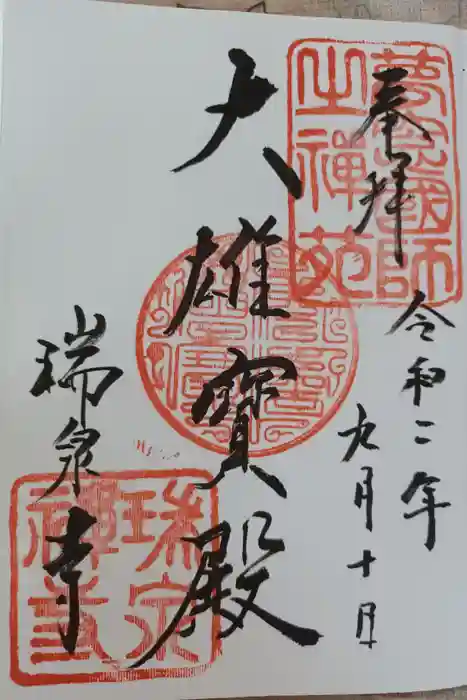 奉拝
夢窓國師
之禪苑
令和二年
九月十日
大雄寶殿
瑞泉寺
瑞泉
禪寺